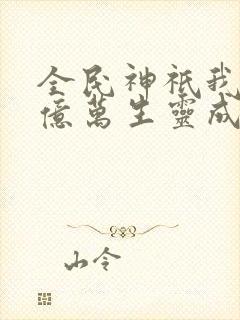 全民神祇我
億萬生靈成
山令